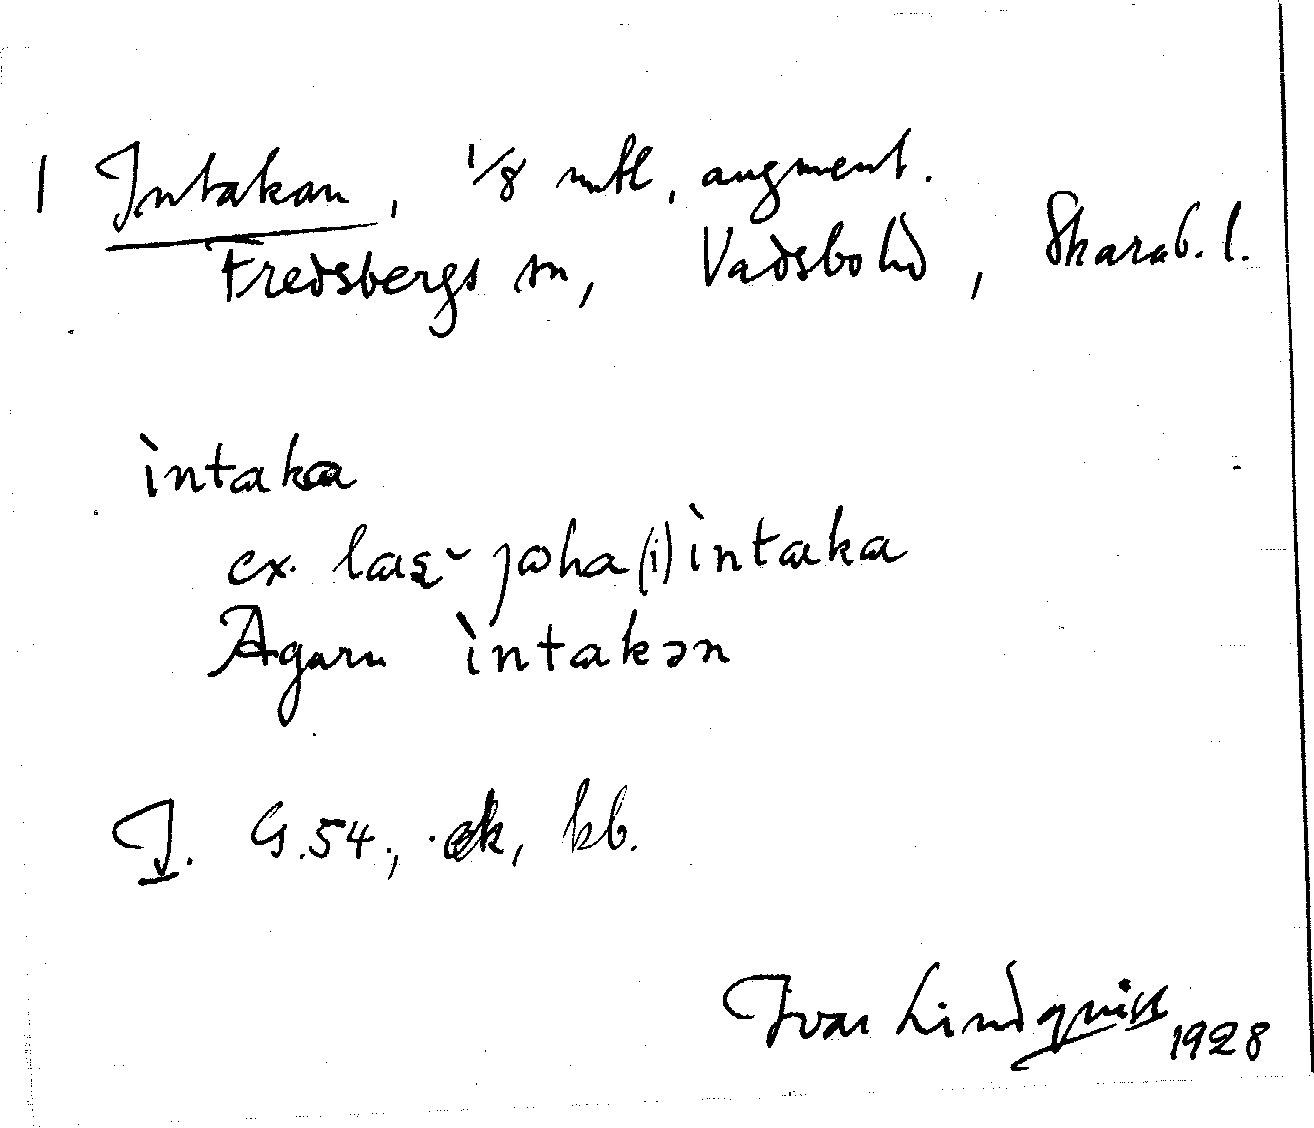 1 Intakan, 1/8 mtl, augment.
Fredsbergs sn, Vadsbo hd, Skarab. l.
ìntaka
ex. las- joha (i) ìntaka
Ägarn ìntakən
I. G. 54., ek, kb.
Ivar Lindquist 1928